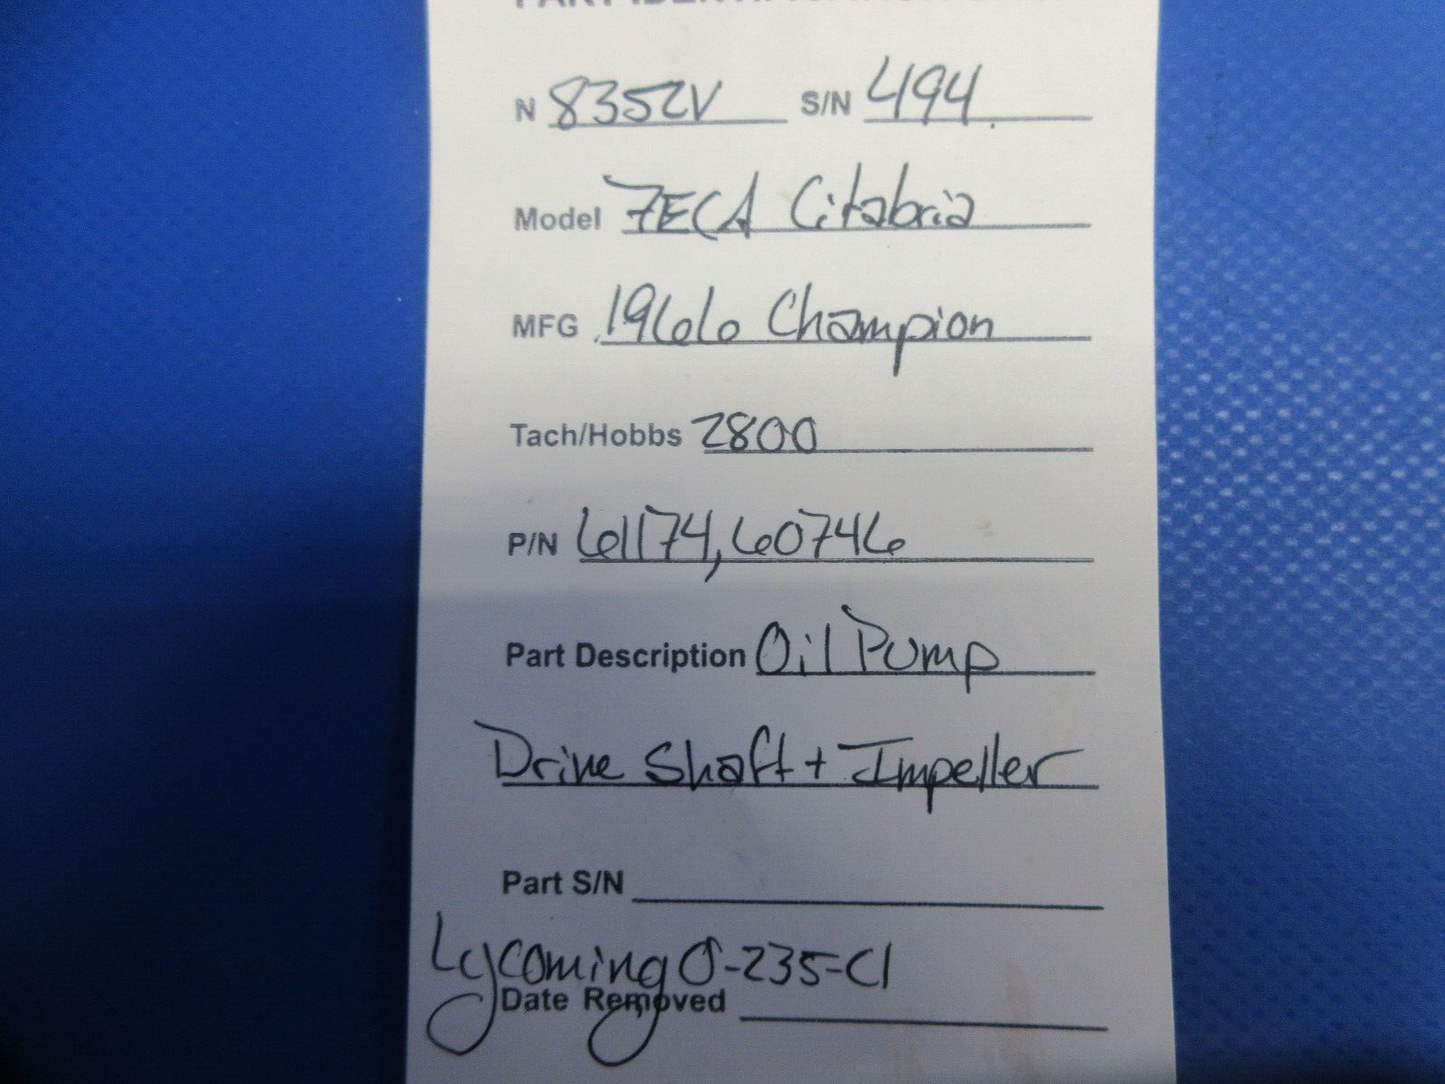 PART IDENTIFICATION
N 8352V S/N 494
Model 7ECA Citabria
MFG 1966 Champion
Tach/Hobbs 2800
P/N 61174, 60746
Part Description Oil Pump
Drive Shaft + Impeller
Part S/N
Lycoming O-235-C1
Date Removed